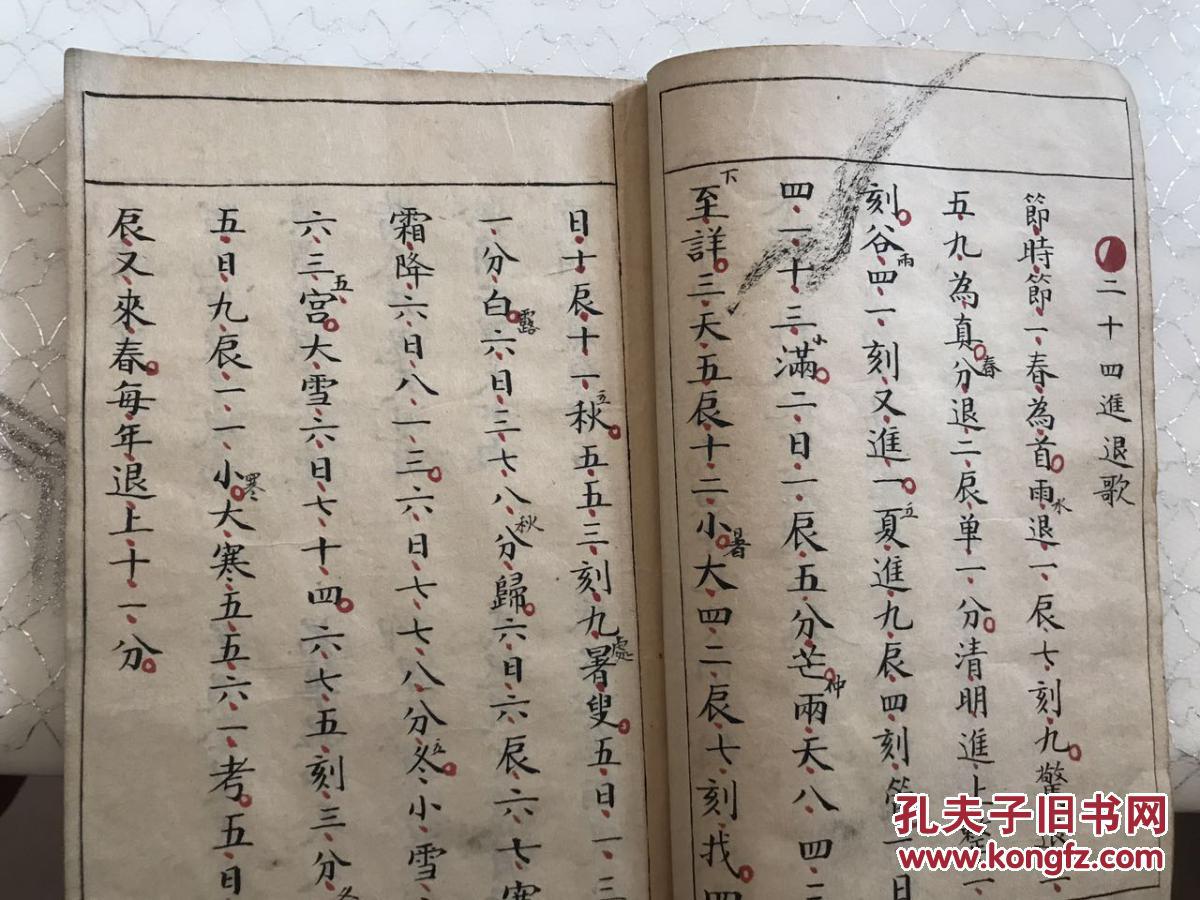 二十四進退歌
節時節一春為首雨水退一辰七刻九驚
五九為真分春退二辰单一分清明進上
刻谷雨四一刻又進一夏立進九辰四刻
四一十三滿小二日一辰五分芒种兩天八四二
至下詳三天五辰十二小暑大四二辰七刻找四
日十辰十一秋立五五三刻九暑處叟五日一三
一分白露六日三七八分秋歸六日六辰六七寒
霜降六日八一三六日七七八分冬立小雪六
六三宫五大雪六日七十四六七五刻三分冬
五日九辰一一小寒大寒五五六一考五日
辰又來春每年退上十一分
孔夫子旧书网
www.kongfz.com